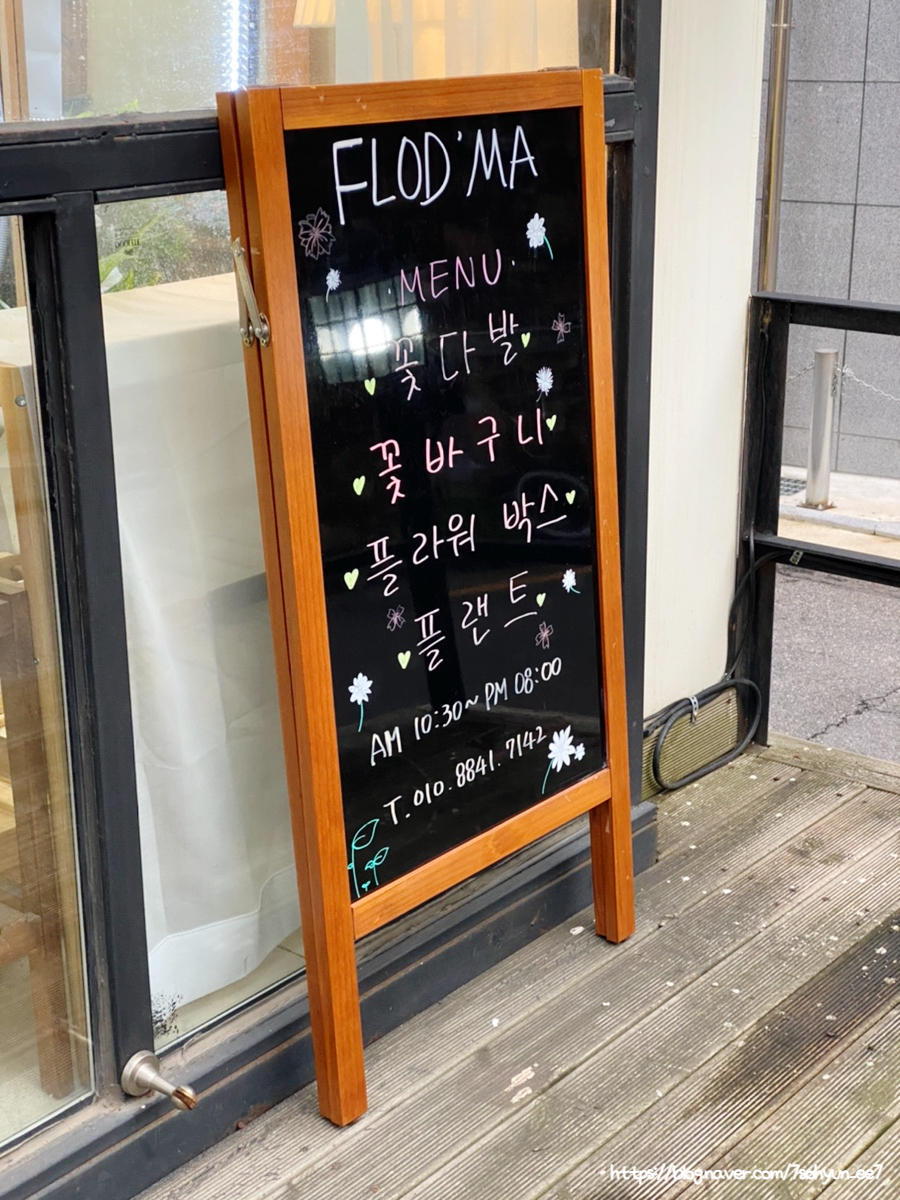 FLOD'MA
·MENU·
꽃다발
꽃바구니
플라워 박스
플랜트
AM 10:30~PM 08:00
T.010.8841.7142
https://blog.naver.com/7sohyun_ee7